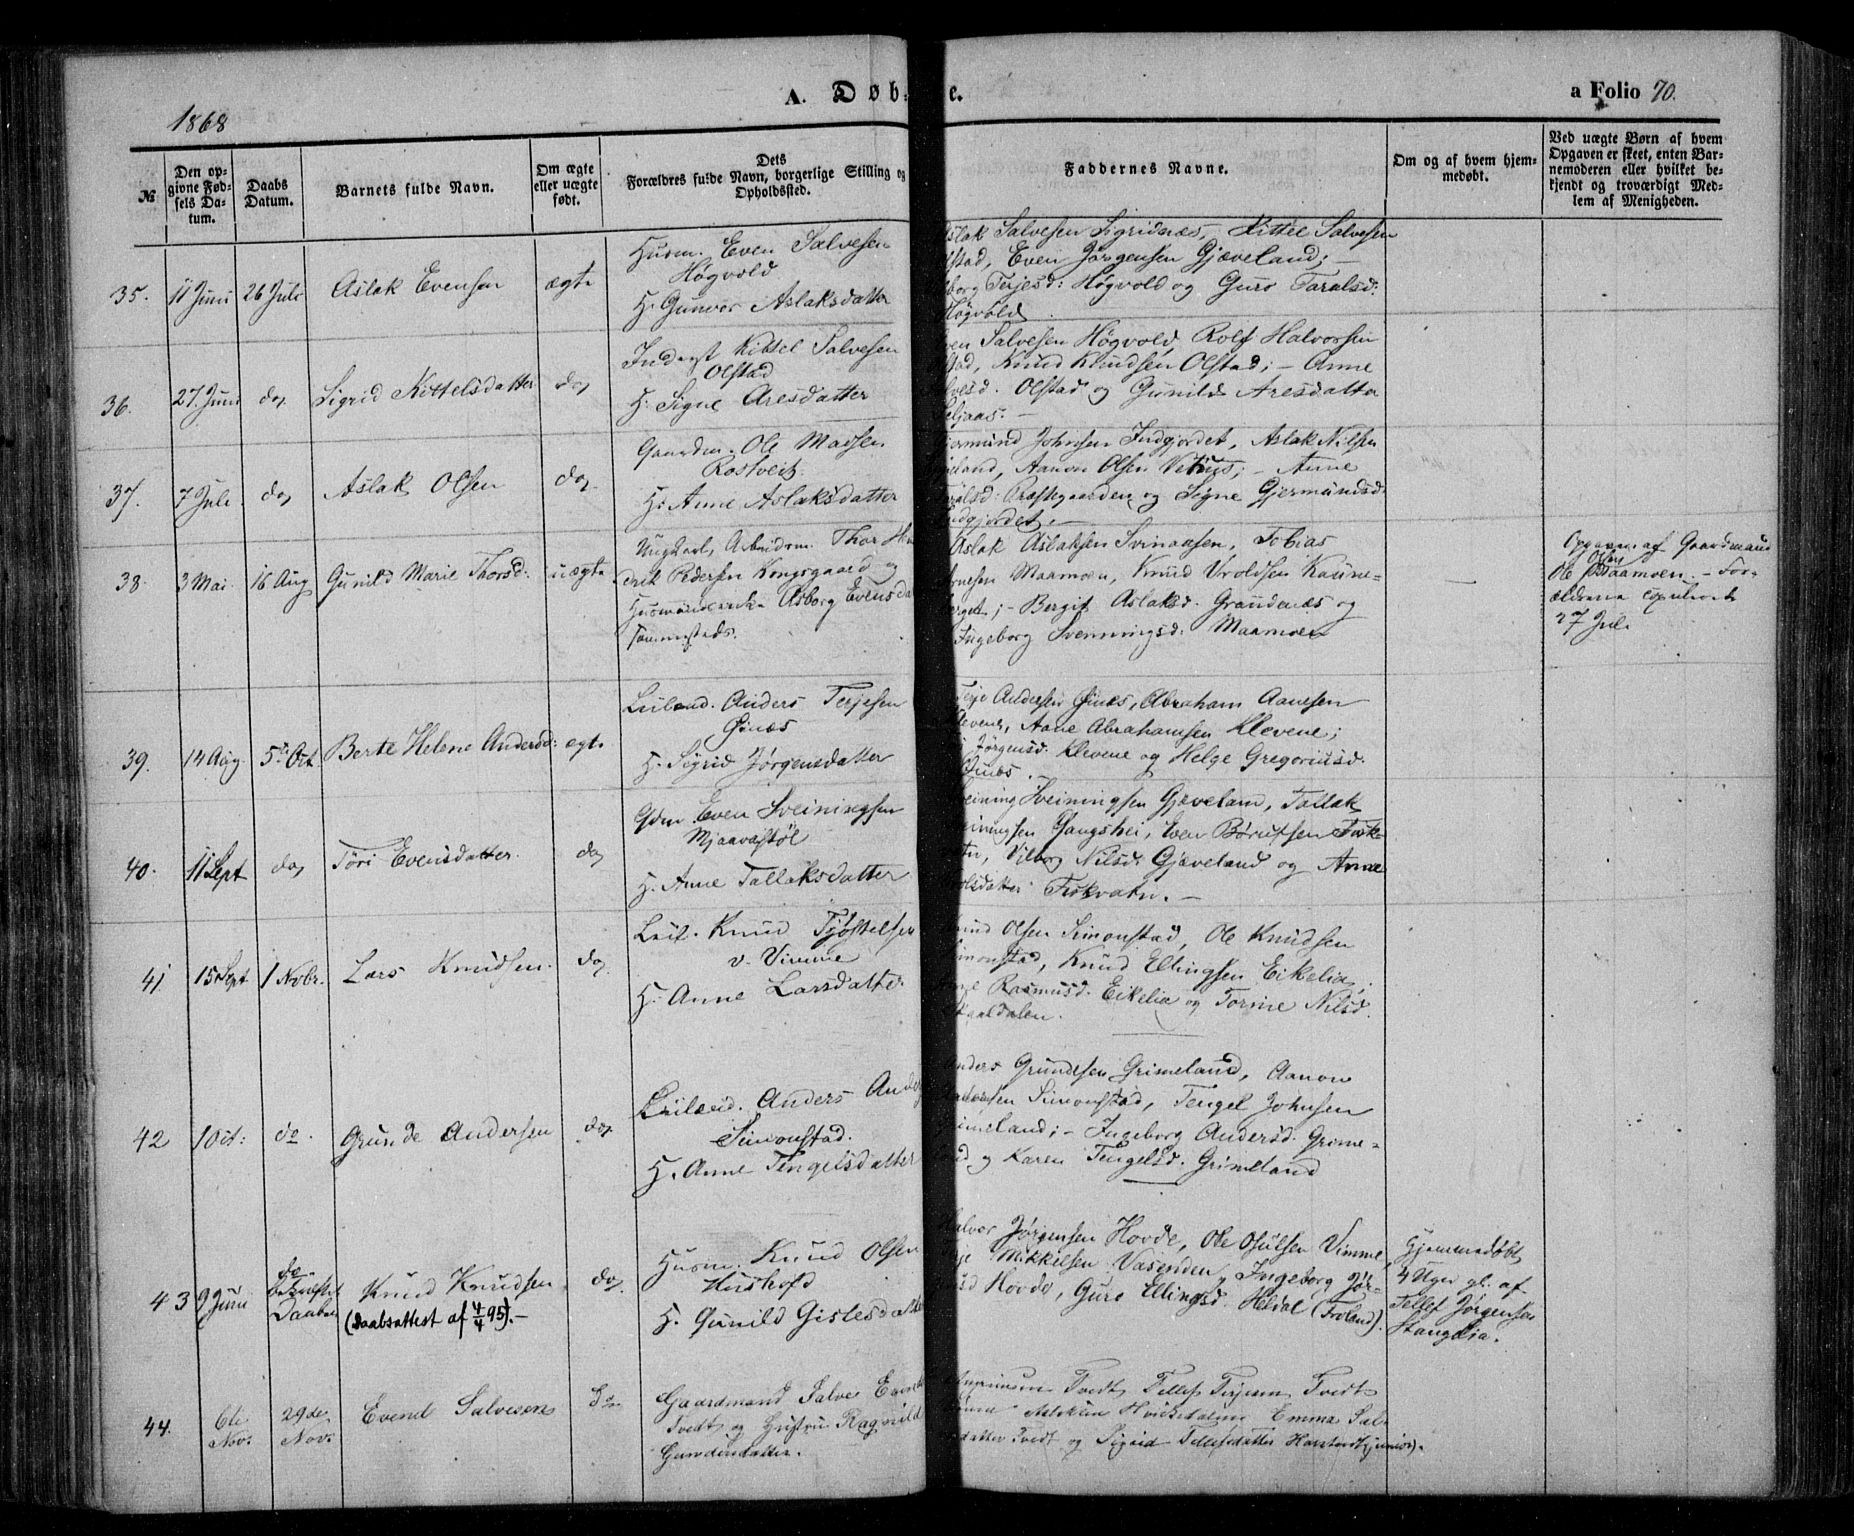 1868
A. Døb-
e.
a Folio 70.
№
Den op-
givne Fød-
sels Da-
tum.
Daabs
Datum.
Barnets fulde Navn.
Om ægte
eller uægte
født.
Dets
Forældres fulde Navn, borgerlige Stilling og
Opholdssted.
Faddernes Navne.
Om og af hvem hjem-
medøbt.
Ved uægte Børn af hvem
Opgaven er skeet, enten Bar-
nemoderen eller hvilket be-
kjendt og troværdigt Med-
lem af Menigheden.
35. 11 Juni 26 Juli Aslak Evensen ægte
Husm. Even Salvesen
Høgvold
H. Gunvor Aslaksdatter
Aslak Salvesen Sigridnæs, Kittel Salvesen
Olstad, Even Jørgensen Gjæveland; –
Terjesd: Høgvold og Guro Taralsd:
Høgvold
36. 27. Juni do, Sigrid Kittelsdatter do,
Inderst Kittel Salvesen
Olstad
H. Signe Aresdatter
Salvesen Høgvold, Rolf Halvorsen
Olstad, Knud Knudsen Olstad; – Anne
Olstad og Gunild Aresdatter
37. 7 Juli do, Aslak Olsen do,
Gaardm. Ole Madsen
Rostveit
H. Anne Aslaksdatter
Johnsen Indgjordet, Aslak Nilsen
Aanon Olsen; – Anne
Taralsd: Præstegaarden og Signe Gjermundsd:
Indgjordet. –
38. 3 Mai 16 Aug Gunild Marie Thorsd: uægte
Ungkarl, Arbeidsm. Thor Hen
drik Pedersen Kongsgaard og
Asborg Evensda
Aslak Aslaksen Svinaasen, Tobias
Maamoen, Knud Vroldsen
Bergit Aslaksd. Grandenæs og
Ingeborg Svenningsd: Maamoen
—
Opgaven af Gaardmand
Ole Olsen Maamoen. – For-
ældrene copuleret
27 Juli
39. 14 Aug. 5te Oct. Berte Helene Andersd: ægte
Leilænd. Anders Terjesen
H. Sigrid Jørgensdatter
Terje Andersen Abraham Aanesen
Klevene, Aane Abrahamsen Klevene;
Jørgensd. Klevene og Helge Gregoriusd.
40. 11 Sept do, Tori Evensdatter. do,
Gdm Even Sveinungsen
Mjaavastøl
H. Anne Tallaksdatter
Sveinungsen Gjæveland, Tallak
Even
Vilborg Nilsd: Gjæveland og Anne
Fiskvatn. –
41 15 Sept 1 Novbr. Lars Knudsen. do,
Leil. Knud Tjøstelsen
v. Vimme
H. Anne Larsdatter
Knud Olsen Simonstad, Ole Knudsen
Simonstad, Knud Ellingsen Eikelia;
Rasmusd. Eikelia og Torine Nilsd.
42 1 Oct: do. Grunde Andersen do,
Leilænd. Anders And
Simonstad.
H. Anne Tengelsdatter
Anders Grundesen Grimeland, Aanon
Simonstad, Tengel Johnsen
Grimeland; – Ingeborg Andersd. Grime-
land og Karen Tengelsd. Grimeland
43 9 Juni do
Daaben
Knud Knudsen do,
(Daabsattest af 4/4 95). –
Husm. Knud Olsen
H. Gunild Gislesdatter
Halvor Jørgensen Hovde, Ole Osulsen Vimme,
Mikkelsen Vasenden, Ingeborg Jør-
Hovde, Guro Ellingsd. Heldal (Froland).
Hjemmedøbt
4 Uger gl. af
Tellef Jørgensen
Stanglia.
44. 6te
Nov.
29de
Nov.
Evend Salvesen do
Gaardmand Salve
Tvedt og Hustru Ragnild
Gundersdatter.
Tvedt, Tellef Terjesen Tvedt
Emma Sal-
datter Tvedt og Sigrid Tellefsdatter